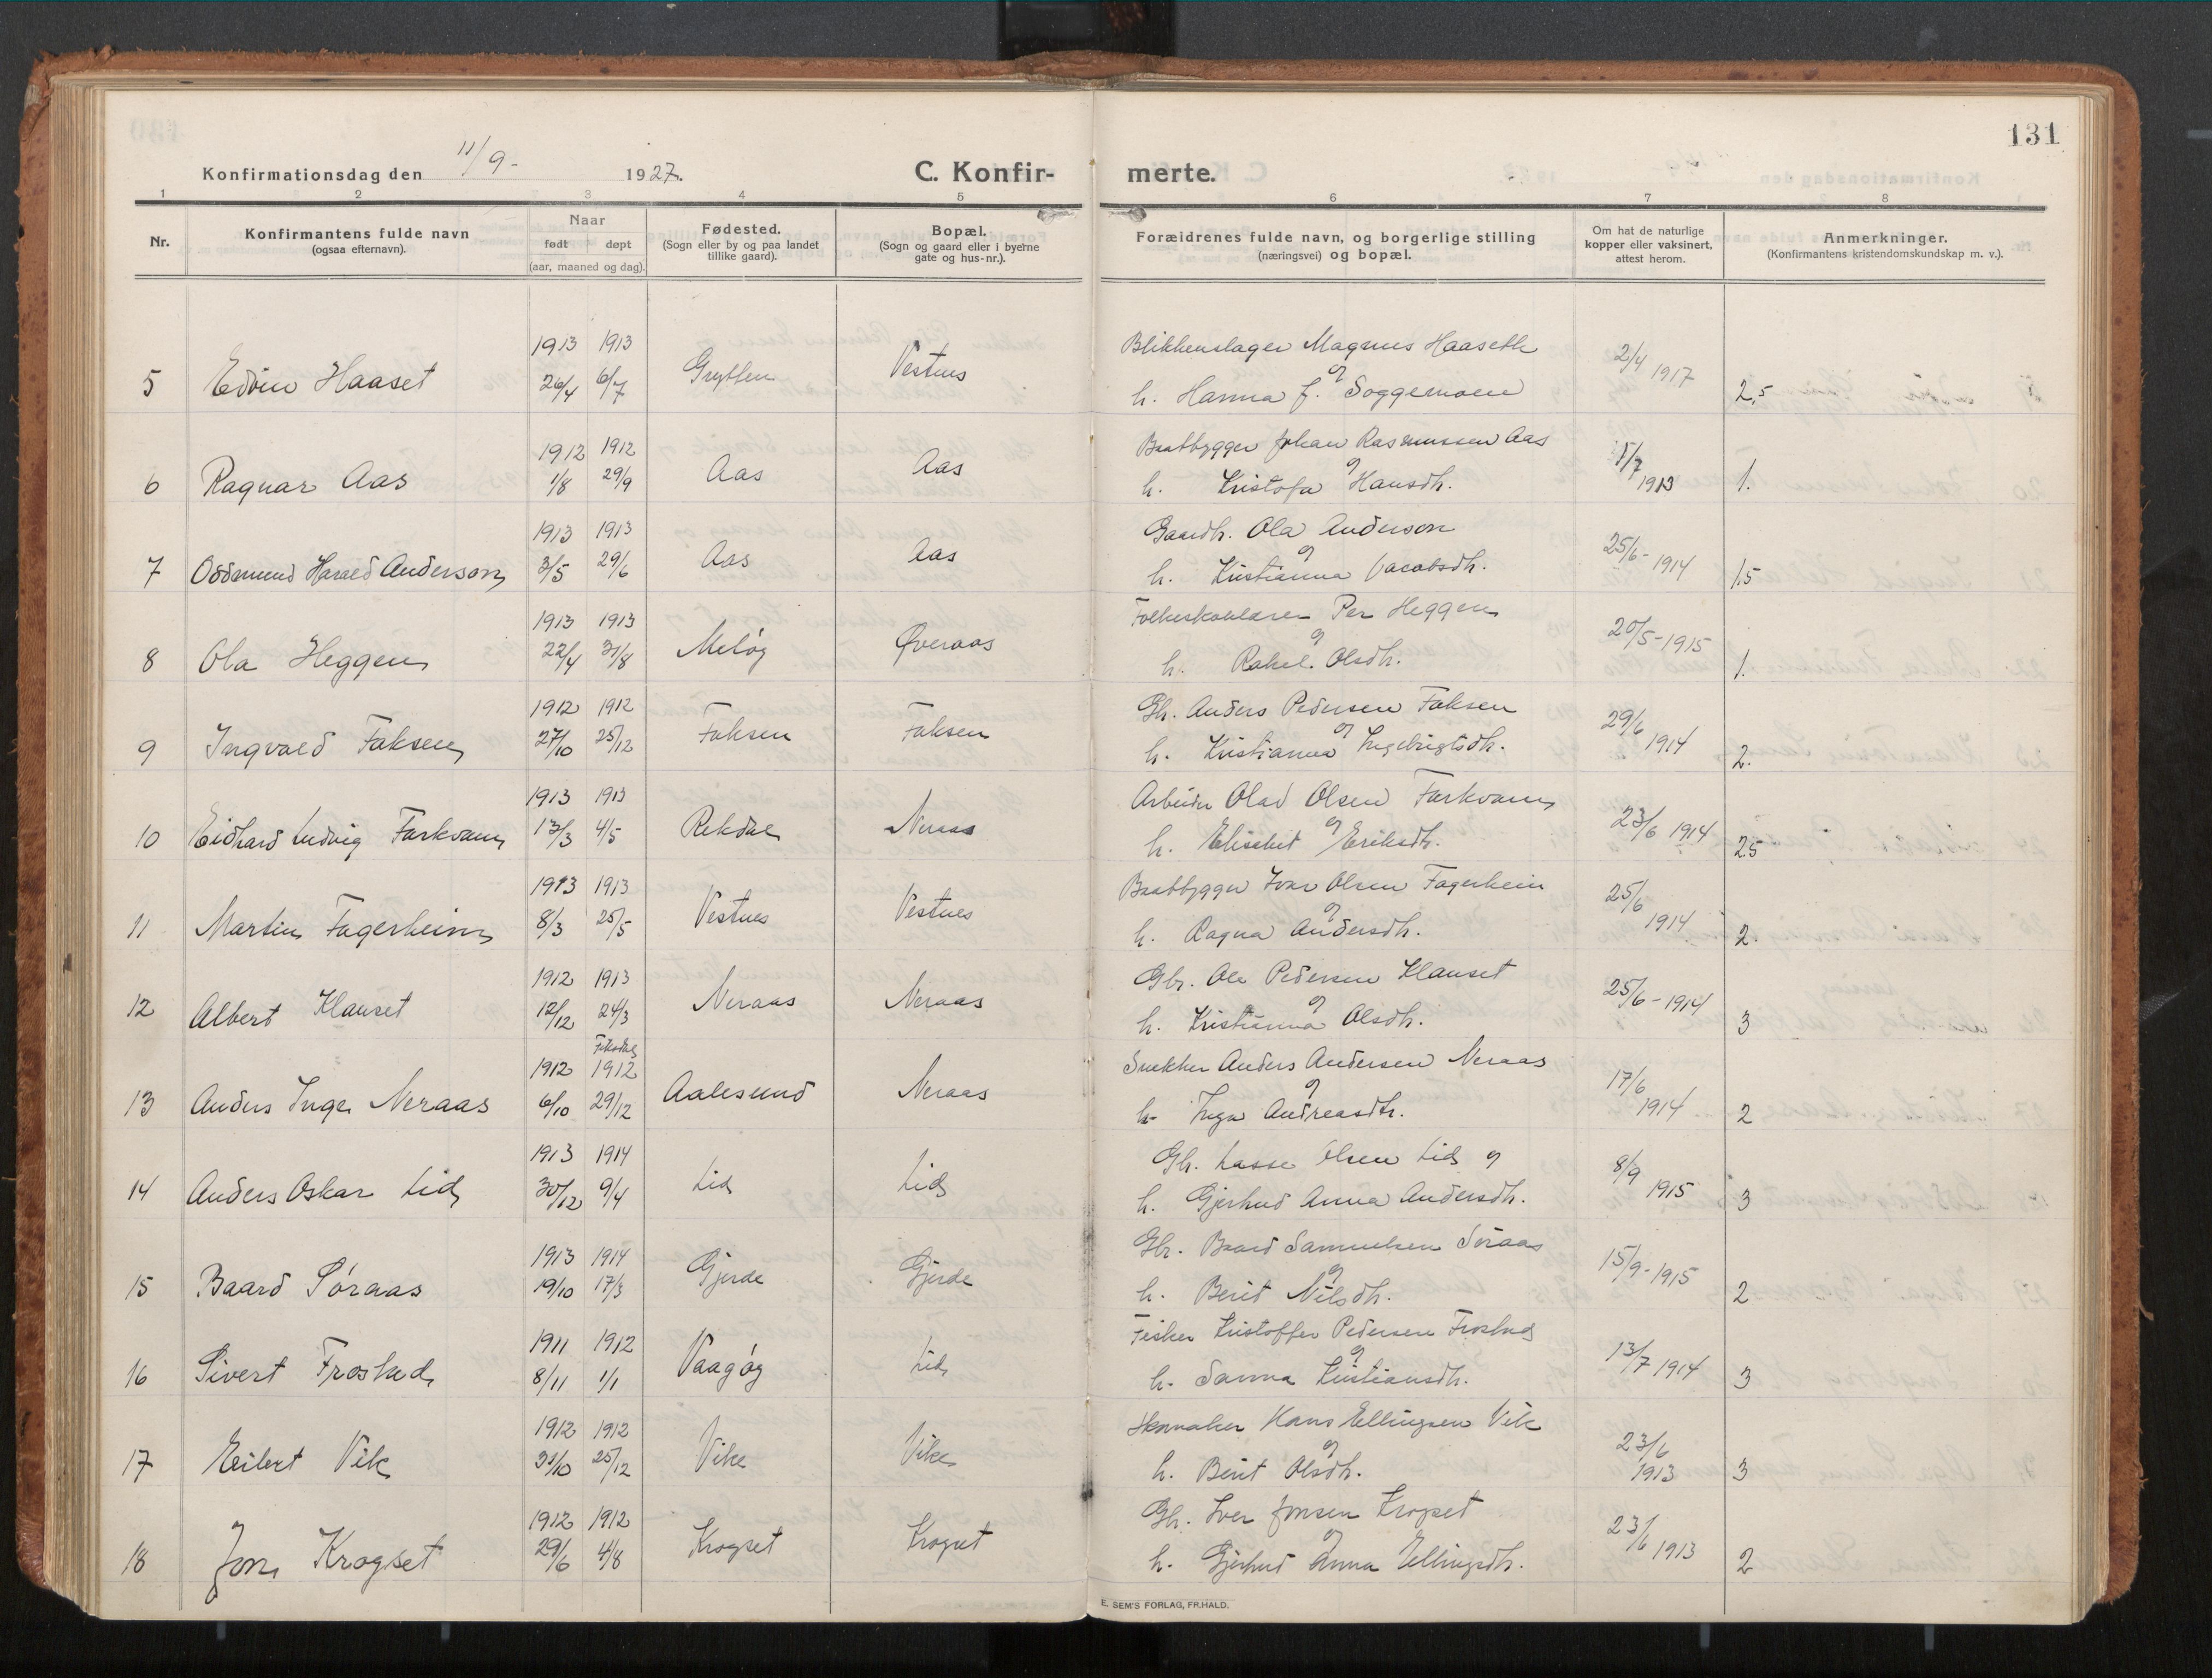 131
Konfirmationsdag den 11/9 - 1927. C. Konfirmerte.
1 2 3 4 5 6 7 8
Nr. Konfirmantens fulde navn (ogsaa efternavn). Naar født døpt (aar, maaned og dag). Fødested. (Sogn eller by og paa landet tillike gaard). Bopæl. (Sogn og gaard eller i byerne gate og hus-nr.). Forældrenes fulde navn, og borgerlige stilling (næringsvei) og bopæl. Om hat de naturlige kopper eller vaksinert, attest herom. Anmerkninger. (Konfirmantens kristendomskundskap m. v.).
1913 1913 Blikkenslager Magnus Haaseth
5 Edvin Haaset 26/4 6/7 Grytten Vestnes og 2/4 1917
h. Hanna f. Soggemoen 2,5
1912 1912 Baatbygger Johan Rasmussen Aas
6 Ragnar Aas 1/8 29/9 Aas Aas og 1913 1.
h. Kristofa Hansdtr.
1913 1913 Gaardbr. Ola Anderson
7 Oddmund Harald Anderson 3/5 29/6 Aas Aas og 25/6 - 1914 1.5
h. Kristianna Jacobsdtr.
1913 1913 Folkeskolelærer Per Heggen
8 Ola Heggen 22/4 31/8 Meløy Øveraas og 20/5 - 1915 1.
h. Rakel Olsdtr.
1912 1912 Gbr. Anders Pedersen Faksen
9 Ingvald Faksen 27/10 25/12 Faksen Faksen og 29/6 1914 2.
h. Kristianna Ingebrigtsdtr.
1913 1913 Arbeider Olav Olsen Farkvam
10 Eidhard Ludvig Farkvam 13/3 4/5 Rekdal Neraas og 23/6 1914 2.5
h. Elisabet Eriksdtr.
1913 1913 Baatbygger Ivar Olsen Fagerheim
11 Martin Fagerheim 8/3 25/5 Vestnes Vestnes og 25/6 1914 2.
h. Ragna Andersdtr.
1912 1913 Gbr. Ole Pedersen Klauset
12 Albert Klauset 12/12 24/3 Neraas Neraas og 25/6 - 1914 3
h. Kristianna Olsdtr.
Fiksdal
1912 1912 Snekker Anders Andersen Neraas
13 Anders Inge Neraas 6/10 29/12 Aalesund Neraas og 17/6 1914 2
h. Inga Andreasdtr.
1913 1914 Gbr. Lasse Olsen Lid og
14 Anders Oskar Lid 30/12 9/4 Lid Lid 8/9 1915 3
h. Gjertrud Anna Andersdtr.
1913 1914 Gbr. Baard Samuelsen Søraas
15 Baard Søraas 19/10 17/3 Gjerde Gjerde og 15/9 - 1915 2
h. Berit Nilsdtr.
1911 1912 Fisker Kristoffer Pedersen Frostad
16 Sivert Frostad 8/11 1/1 Vaagøy Lid og 13/7 1914 3
h. Sanna Kristiansdtr.
1912 1912 Skomaker Hans Ellingsen Vik
17 Eilert Vik 31/10 25/12 Vike Vike og 23/6 1913 3
h. Berit Olsdtr.
1912 1912 Gbr. Iver Jonsen Krogset
18 Jon Krogset 29/6 4/8 Krogset Krogset og 23/6 1913 2
h. Gjertrud Anna Ellingsdtr.
E. SEM'S FORLAG, FR.HALD.